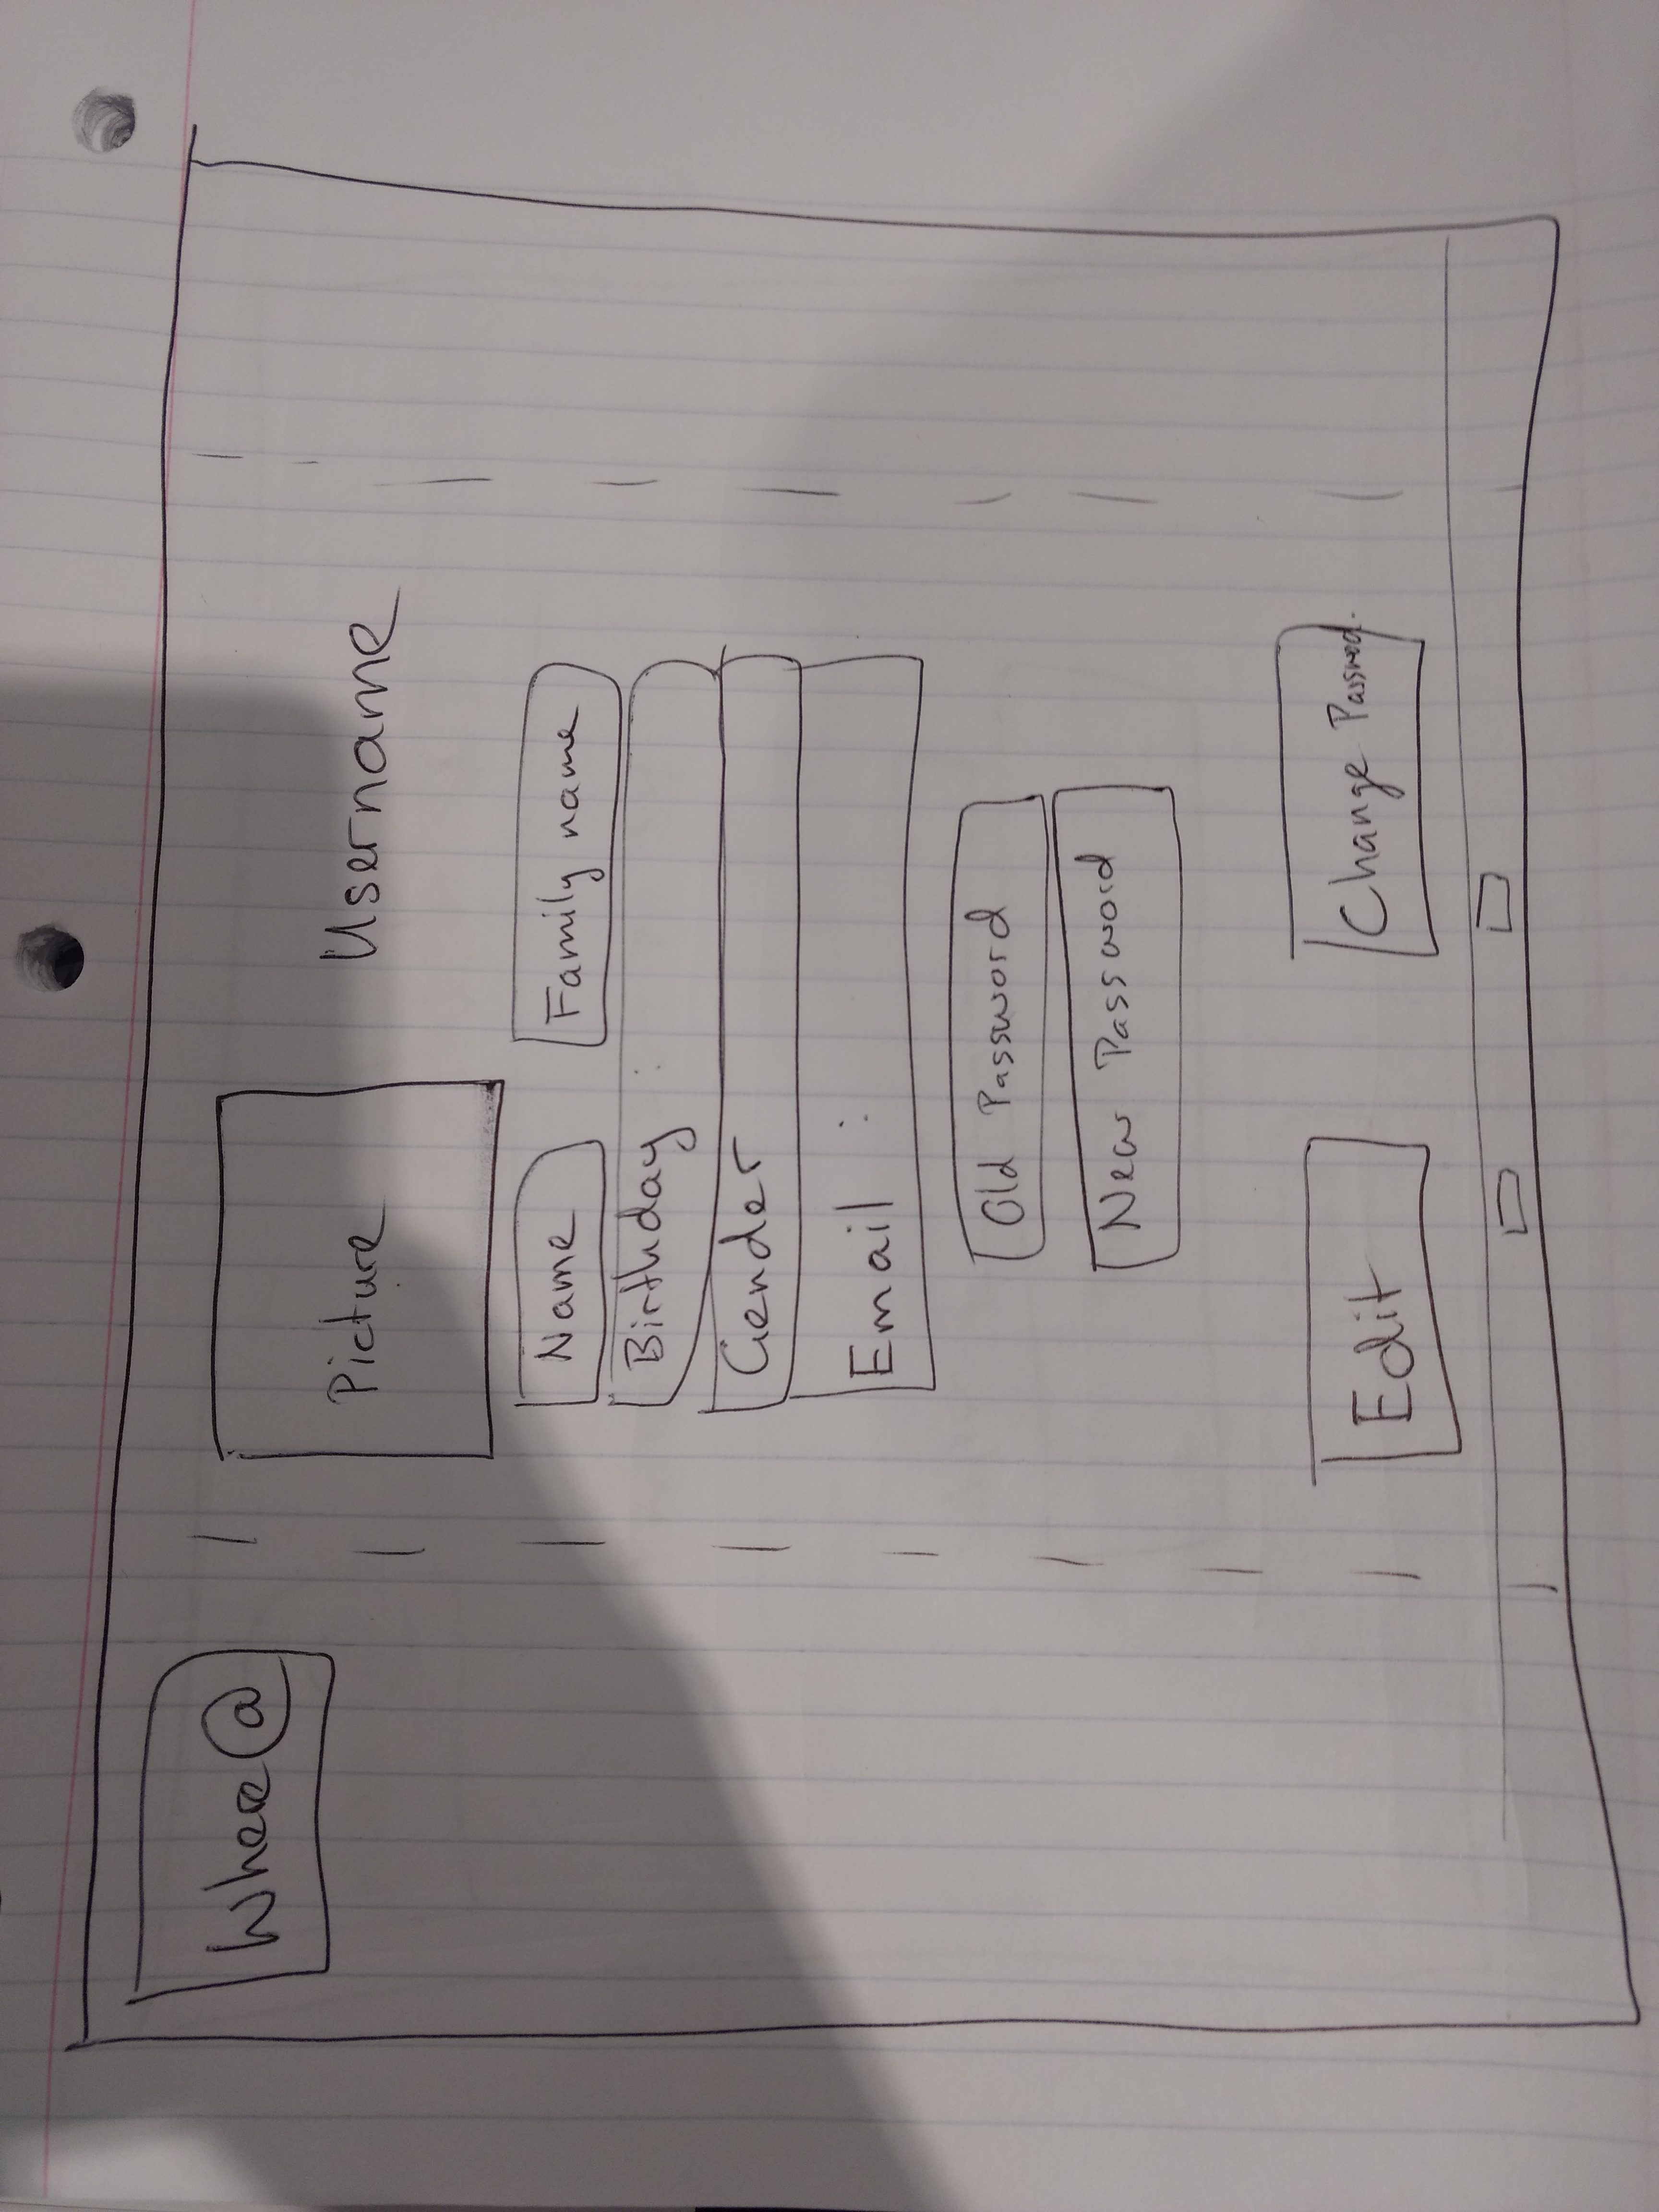 Where@
Picture
Username
Name Family name
Birthday :
Gender
Email :
Old Password
New Password
Edit Change Password.